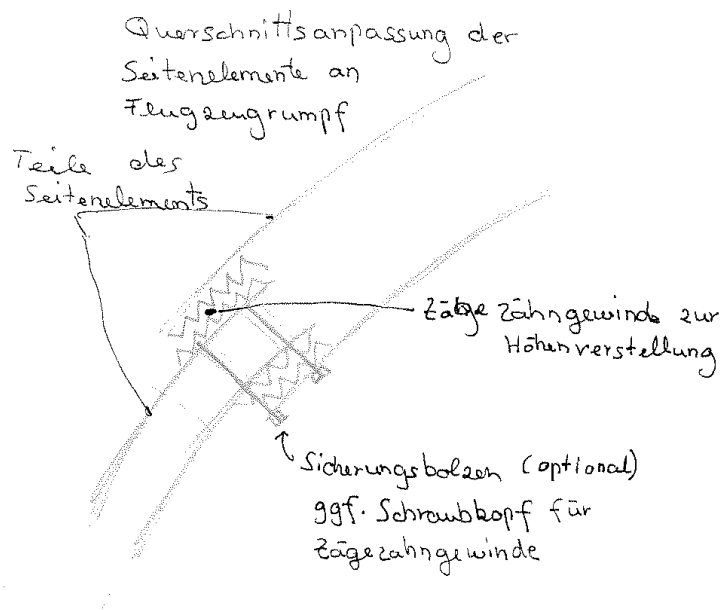 Querschnittsanpassung der
Seitenelemente an
Flugzeugrumpf
Teile des
Seitenelements
Zähngewinde zur
Höhenverstellung
Sicherungsbolzen (optional)
ggf. Schraubkopf für
Zägezahngewinde